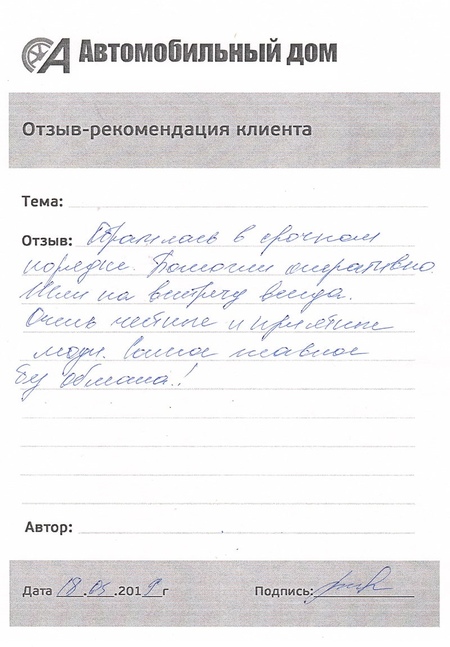 Автомобильный дом
Отзыв-рекомендация клиента
Тема:
Отзыв: Обратилась в срочном
порядке. Помогли оперативно.
Шли на встречу всегда.
Очень честные и приятные
люди. Самое главное
Без обмана.!
Автор:
Дата 18.05.2019г Подпись: